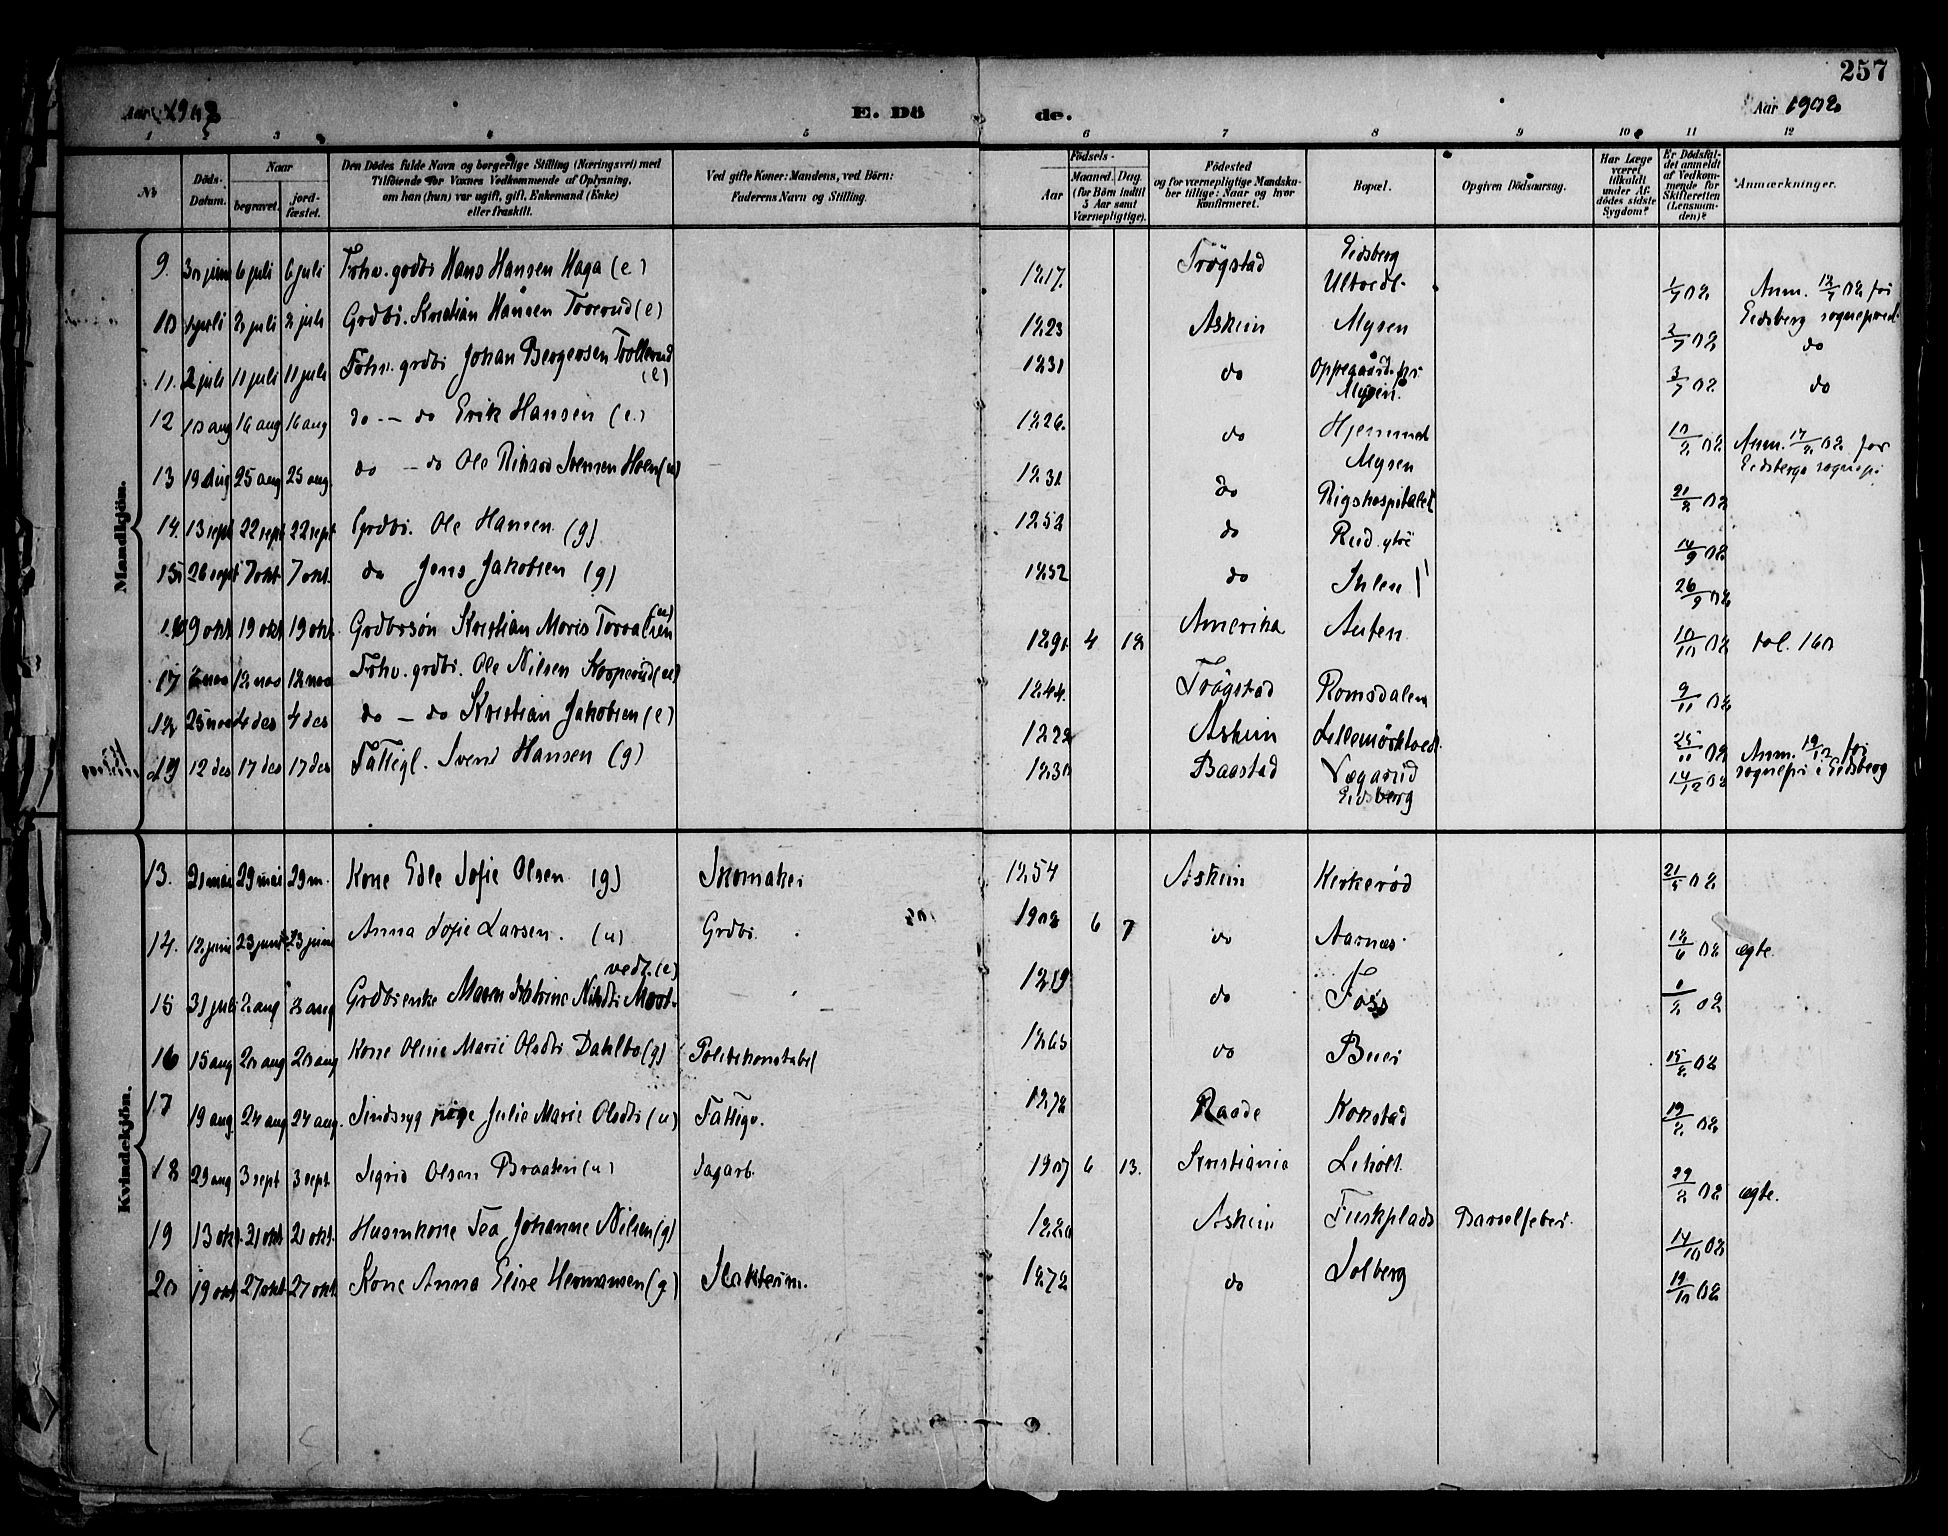 257
Aar 1902 E. Döde. Aar 1902
1 2 3 4 5 6 7 8 9 10 11 12
No
Döds-Datum.
Naar
begravet.
jordfæstet.
Den Dödes fulde Navn og borgerlige Stilling (Næringsvei) med
Tilföiende for Voxnes Vedkommende af Oplysning,
om han (hun) var ugift, gift, Enkemand (Enke)
eller fraskilt.
Ved gifte Koner: Mandens, ved Börn:
Faderens Navn og Stilling.
Födsels-
Aar
Maaned. Dag.
(for Börn indtil
5 Aar samt
Værnepligtige).
Födested
og for værnepligtige Mandskaber tillige: Naar og hvor
konfirmeret.
Bopæl.
Opgiven Dödsaarsag.
Har Læge
været
tilkaldt
under Afdödes sidste
Sygdom?
Er Dödsfaldet anmeldt
af Vedkommende for
Skifteretten
(Lensmanden)?
Anmærkninger.
Mandkjön.
9. 30 juni 6 juli 6 juli Forhv. grdbr Hans Hansen Haga (e) 1817. Trögstad Eidsberg Ultvedt. 1/7 02 Anm. 12/7 02 for Eidsberg sognepræst
10 1 juli 2 juli 2 juli Grdbr. Kristian Hansen Toverud (e) 1823 Askim Mysen 2/7 02 do
11. 2 juli 11 juli 11 juli Forhv. grdbr Johan Bergersen Trollerud (e) 1831 do Oppegaard pr Mysen. 3/7 02 do
12 10 aug 16 aug 16 aug do - do Erik Hansen (e.) 1826. do Hjemmet Mysen 10/8 02 Anm. 17/8 02 for Eidsbergs sognepr
13 19 Aug 25 aug 25 aug. do - do Ole Rikard Svensen Hoen (u) 1831 do Rigshospitalet 21/8 02
14. 13 sept 22 sept 22 sept Grdbr. Ole Hansen (g) 1852 do Rud ytre 14/9 02
15 26 sept 7 okt 7 okt. do Jens Jakobsen (g) 1852 do Ihlen 26/9 02
16 9 okt 19 okt 19 okt Grdbrsön Kristian Moris Torvalsen (u) 1891 4 18 Amerika Auten 10/10 02 tol. 160
17 12 nov 12 nov Forhv. grdbr. Ole Nilsen Skorperud 1844. Trögstad Romsdalen 9/11 02
18 25 nov 4 des 4 des do - do Kristian Jakobsen (e) 1828 Askim Lillemörktvedt 25/11 02
19 12 des 17 des 17 des Fattigl. Svend Hansen (g) 1830 Baastad Vægarud Eidsberg 14/12 02 Anm. 19/12 for sognepr i Eidsberg
Kvindekjön.
13. 20 mai 29 mai 29 m. Kone Edle Sofie Olsen (g) Skomaker 1854 Askim Kirkeröd 21/5 02
14. 12 juni 23 juni 23 juni Anna Sofie Larsen. (u) Grdbr. 1902 6 7 do Aarnæs 18/6 02 ægte.
15 31 juli 2 aug 2 aug Grdbrenke Maren Katrine Nilsdtr Moot- vedt. (e) 1819 do Foss 02
16 15 aug 20 aug 20 aug Kone Oline Marie Olsdtr Dahlbo (g) Politikonstabel 1865 do Buer 15/8 02
17 19 aug. 24 aug 24 aug. Sindssyg pige Julie Marie Olsdtr (u) Fattigv. 1872 Raade Kokstad 19/8 02
18 29 aug 3 sept 3 sept. Sigrid Olsen Braaten (u) Dagarb. 190 6 13. Kristiania Lihölt 29/8 02 ægte.
19 13 okt. 21 okt 21 okt. Husmkone Tea Johanne Nilsen (g) Askim Fuskplads Barselfeber. 14/10 02
20 19 okt 27 okt 27 okt. Kone Anna Elise Hermansen (g) Slakterim. 1872 do Solberg 19/10 02